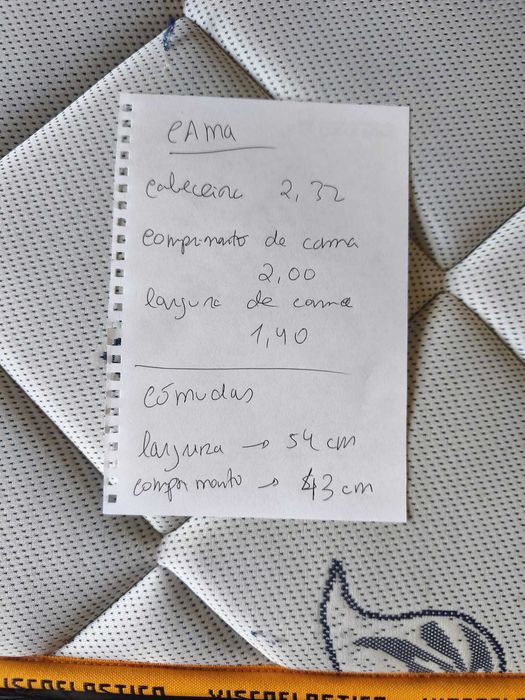 CAMA
cabeceira 2,32
comprimento de cama
2,00
largura de cama
1,40
cómodas
largura → 54 cm
comprimento → 43 cm
VISCOELASTICO